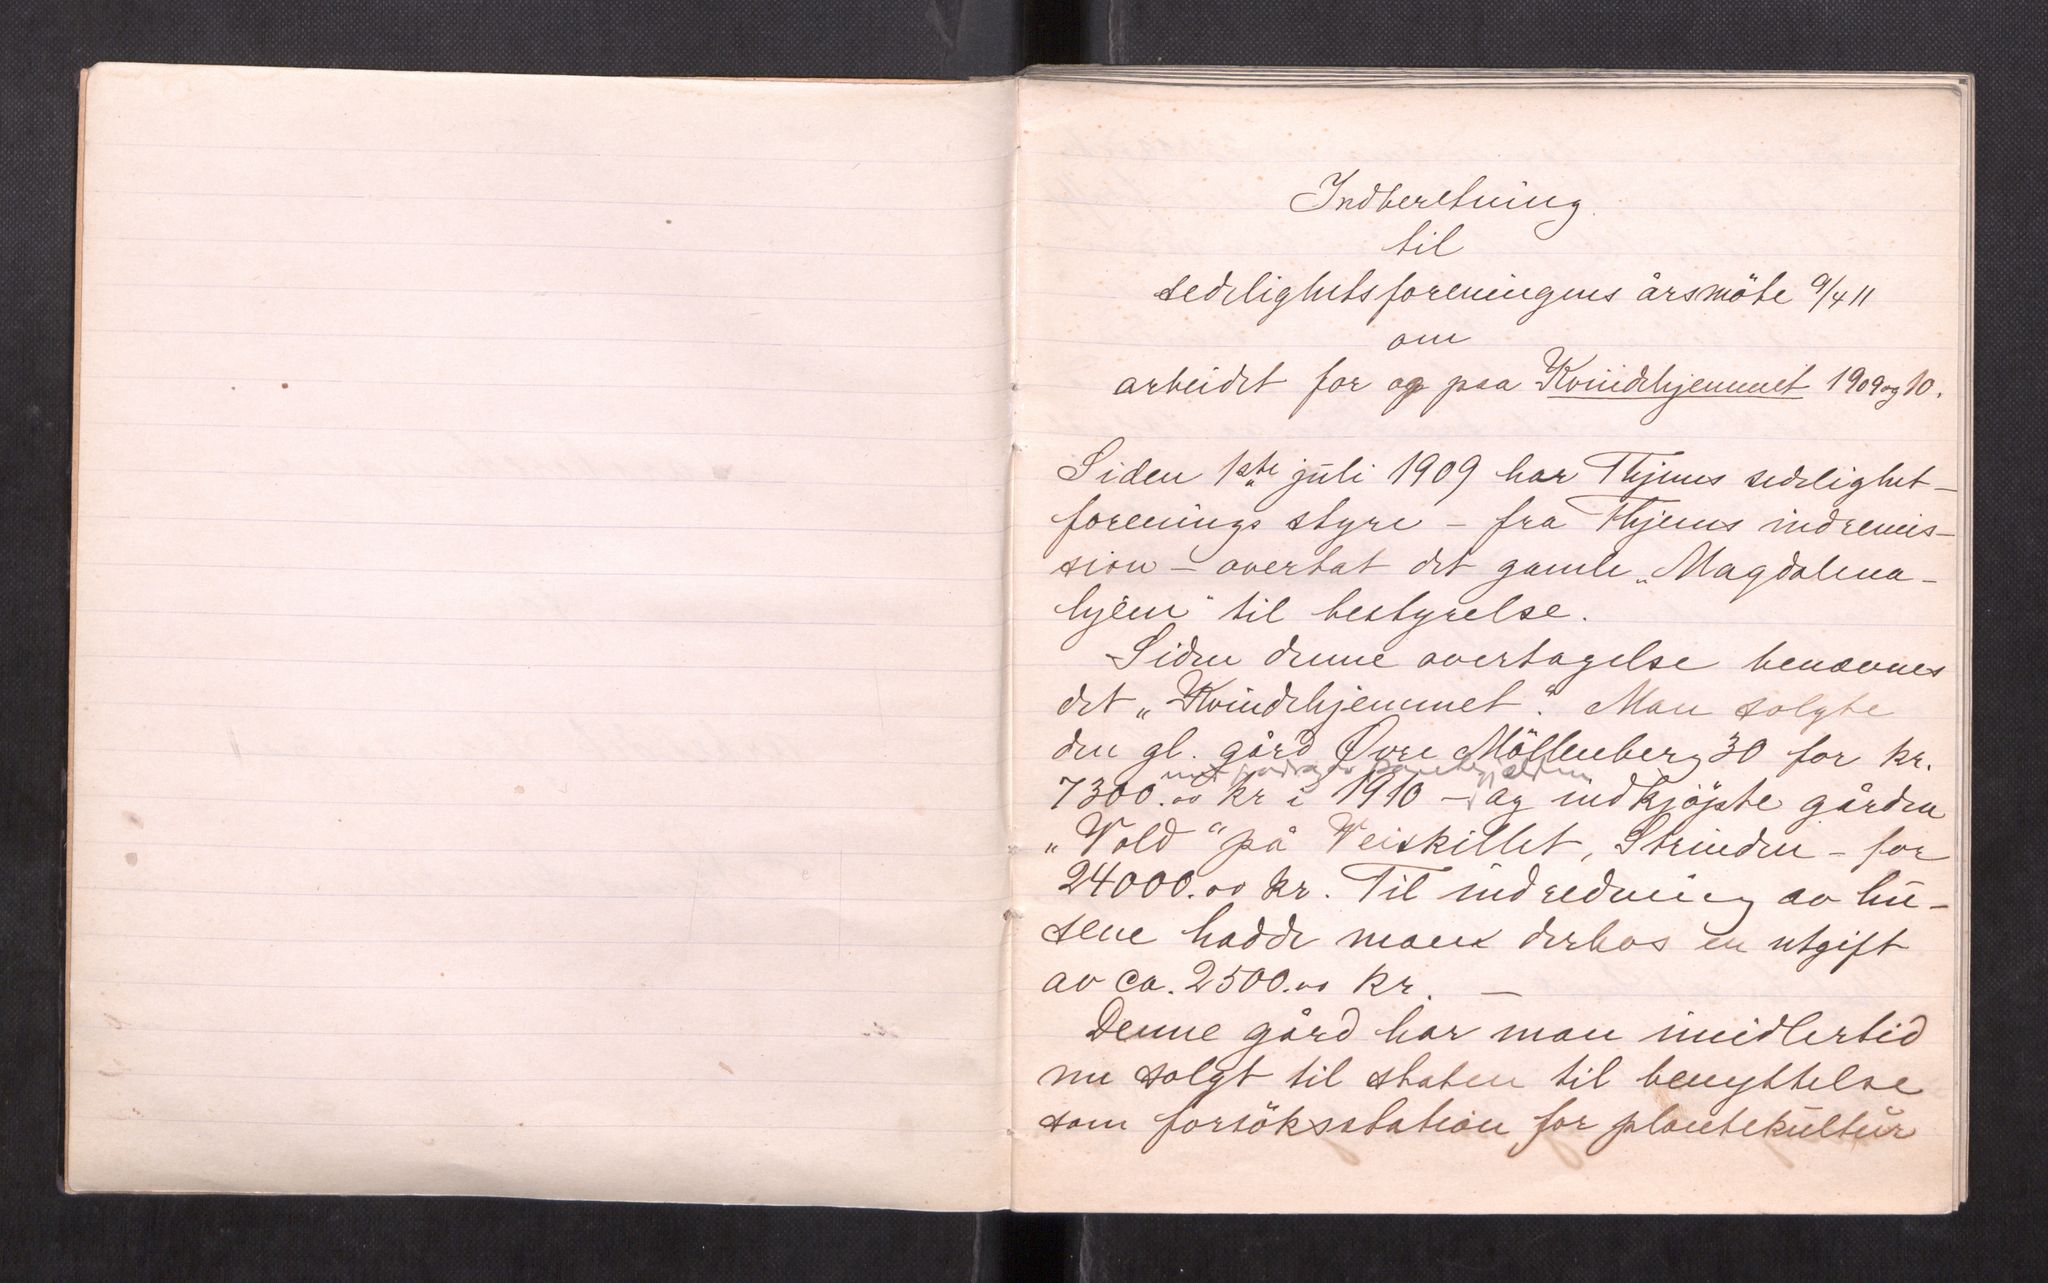 Indberetning
til
sedelighetsforeningens årsmöte 9/4 11
om
arbeidet for og paa Kvindehjemmet 1909 og 10.
Siden 1ste juli 1909 har Thjems sedelighet-
forenings styre – fra Thjems indremis-
sion – overtat det gamle „Magdalena-
hjem“ til bestyrelse.
Siden denne overtagelse benævnes
det „Kvindehjemmet“. Man solgte
den gl. gård Øvre Möllenberg 30 for kr.
7300.00 kr i 1910 – og indkjöpte gården
„Vold“ på Veiskillet, Strinden – for
24000.00 kr. Til indredning av hu-
sene hadde man derhos en utgift
av ca. 2500.00 kr. –
Denne gård har man imidlertid
nu solgt til staten til benyttelse
som forsöksstation for plantekultur